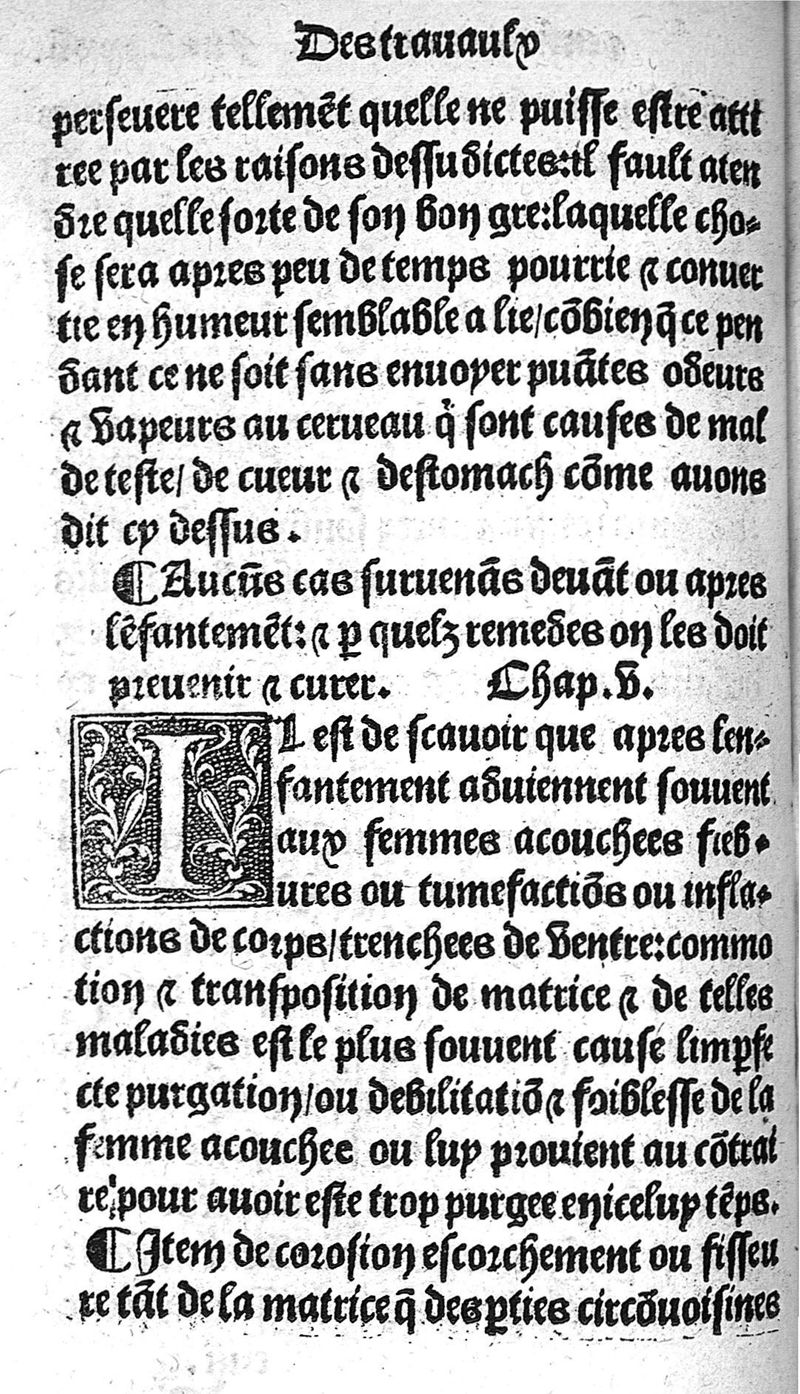 Des trauaulx
perseuere tellemēt quelle ne puisse estre atti
ree par les raisons dessusdictes: il fault aten
dre quelle sorte de son bon gre: laquelle cho-
se sera apres peu de temps pourrie ⁊ conuer
tie en humeur semblable a lie/cōbien q̄ ce pen
dant ce ne soit sans enuoyer puātes odeurs
⁊ vapeurs au cerueau q̇ sont causes de mal
de teste/ de cueur ⁊ destomach cōme auons
dit cy dessus.
¶ Aucūs cas suruenās deuāt ou apres
lēfantemēt: ⁊ ꝑ quelz remedes on les doit
preuenir ⁊ curer. Chap. v.
IL est de scauoir que apres len-
fantement aduiennent souuent
aux femmes acouchees fieb-
ures ou tumefactiōs ou infla-
ctions de corps/trenchees de ventre: commo
tion ⁊ transposition de matrice ⁊ de telles
maladies est le plus souuent cause limꝑfe
cte purgation/ou debilitatiō ⁊ foiblesse de la
femme acouchee ou luy prouient au cōtrai
re pour auoir este trop purgee en iceluy tēps.
¶ Item de corosion escorchement ou fisseu
re tāt de la matrice q̄ des ꝑties circōuoisines